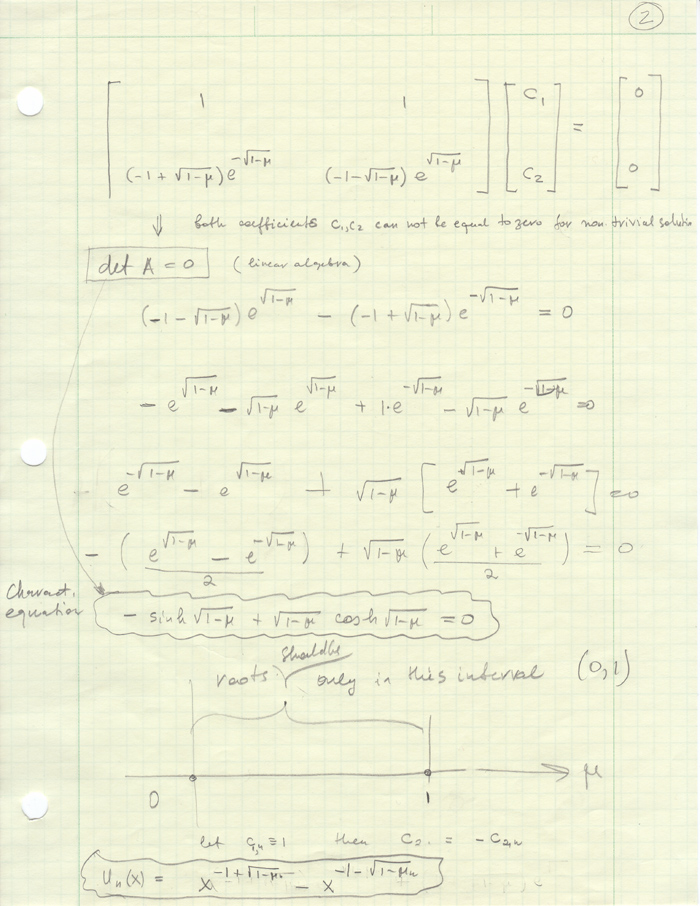 2
[ 1 1 ] [ C₁ ] = [ 0 ]
[ (-1+√1-μ)e^-√1-μ (-1-√1-μ)e^√1-μ ] [ C₂ ] [ 0 ]
⇓ both coefficients C₁,C₂ can not be equal to zero for non trivial solution
det A = 0 (linear algebra)
(-1-√1-μ)e^√1-μ - (-1+√1-μ)e^-√1-μ = 0
- e^√1-μ - √1-μ e^√1-μ + 1·e^-√1-μ - √1-μ e^-√1-μ = 0
e^-√1-μ - e^√1-μ + √1-μ [e^√1-μ + e^-√1-μ] = 0
- ((e^√1-μ - e^-√1-μ)/2) + √1-μ ((e^√1-μ + e^-√1-μ)/2) = 0
Charact. equation
- sinh √1-μ + √1-μ cosh √1-μ = 0
should be
roots only in this interval (0,1)
0 1 μ
let C₁,ₙ ≡ 1 then C₂ = -C₂,ₙ
Uₙ(x) = x^-1+√1-μₙ - x^-1-√1-μₙ